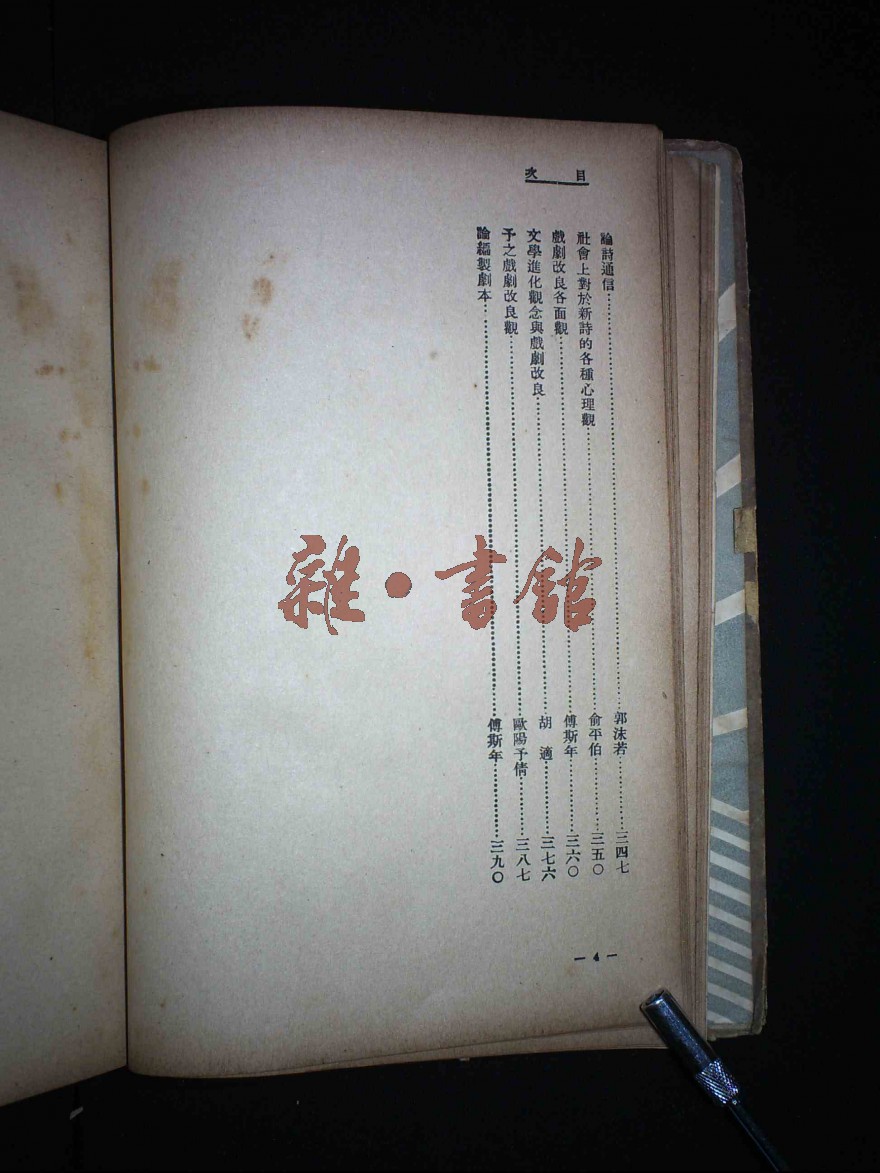 目次
論詩通信……郭沫若……三四七
社會上對於新詩的各種心理觀……俞平伯……三五〇
戲劇改良各面觀……傅斯年……三六〇
文學進化觀念與戲劇改良……胡適……三七六
予之戲劇改良觀……歐陽予倩……三八七
論編製劇本……傅斯年……三九〇
— 4 —
雜·書館